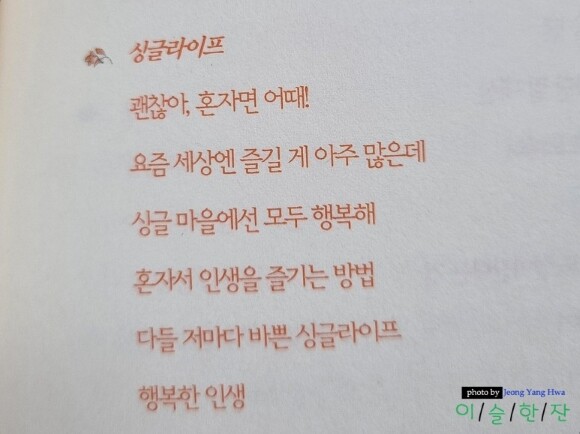 싱글라이프
괜찮아, 혼자면 어때!
요즘 세상엔 즐길 게 아주 많은데
싱글 마을에선 모두 행복해
혼자서 인생을 즐기는 방법
다들 저마다 바쁜 싱글라이프
행복한 인생
photo by Jeong Yang Hwa
이/슬/한/잔